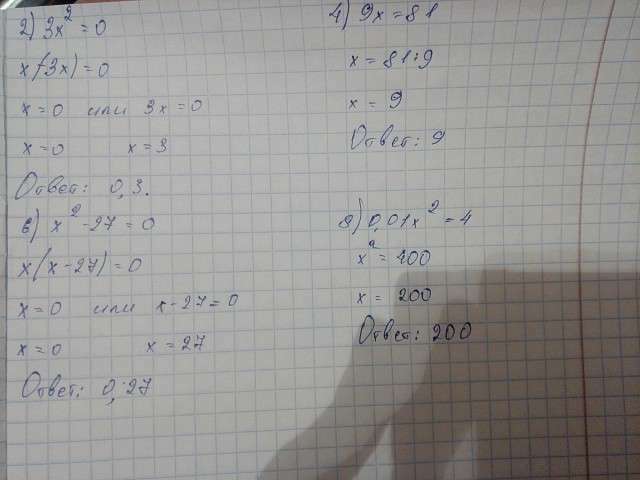 2) 3x² = 0
x(3x) = 0
x = 0 или 3x = 0
x = 0 x = 3
Ответ: 0, 3.
6) x² - 27 = 0
x(x - 27) = 0
x = 0 или x - 27 = 0
x = 0 x = 27
Ответ: 0; 27
4) 9x = 81
x = 81:9
x = 9
Ответ: 9
8) 0,01x² = 4
x² = 400
x = 200
Ответ: 200